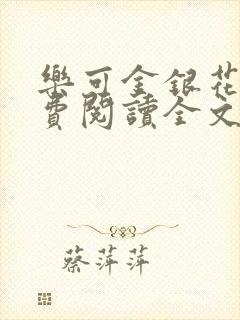 樂可金銀花
費閱讀全文
蔡萍萍